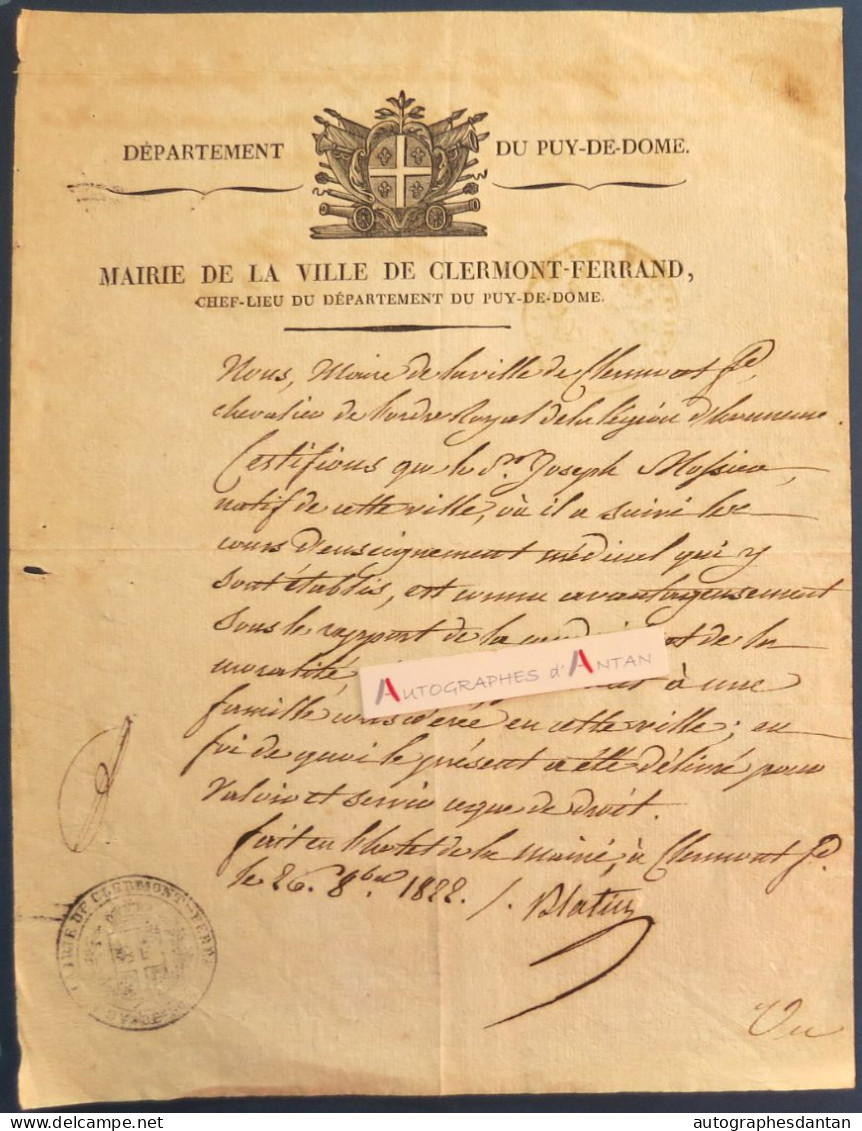 DÉPARTEMENT DU PUY-DE-DOME.
MAIRIE DE LA VILLE DE CLERMONT-FERRAND,
CHEF-LIEU DU DÉPARTEMENT DU PUY-DE-DOME.
Nous, Maire de la ville de Clermont fd.
chevalier de l'ordre Royal de la légion d'honneur.
Certifions que le Sr. Joseph
natif de cette ville, où il a suivi les
cours d'enseignement médical qui y
sont établis, est connu avantageusement
sous le rapport de la et de la
moralité à une
AUTOGRAPHES d'ANTAN
famille considérée en cette ville; en
foi de quoi le présent a été délivré pour
valoir et servir ce que de droit.
fait en l'hotel de la mairie, à Clermont fd.
le 26. 8bre 1822. /. Blatin
MAIRIE DE CLERMONT-FERRD
Vu
delcampe.net
autographesdantan